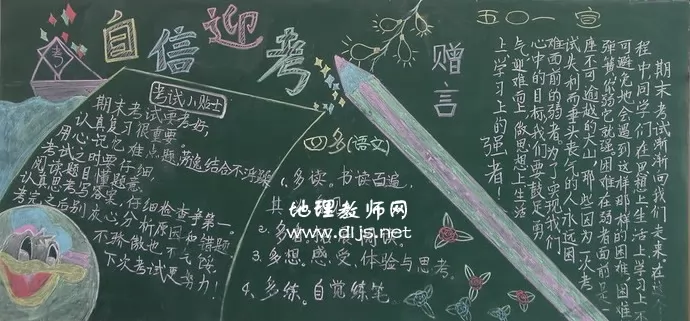 五〇一 宣
自信迎考
考
考试小贴士
期末考试要考好,
认真复习很重要。
用心记忆难点题,劳逸结合不浮躁
考试之时要仔细,
阅读题目懂题意,
认真思考写答案,仔细检查争第一。
考完之后别灰心,分析原因和错题,
不骄傲也不气馁,
下次考试更努力!
四多(语文)
1、多读。书读百遍,
其
2、多
3、多想。感受、体验与思考。
4、多练。自觉练笔
地理教师网
www.dljs.net
赠言
期末考试渐渐向我们走来,在
程中同学们在思想上生活上学习上不
可避免地会遇到这样那样的困难,困难
弹簧你弱它就强困难在弱者面前是一
座不可逾越的大山,那些因为一次考
试失利而垂头丧气的人,永远困
难面前的弱者,为了实现我们
心中的目标,我们要鼓足勇
气迎难而上,做思想上生活
上学习上的强者!